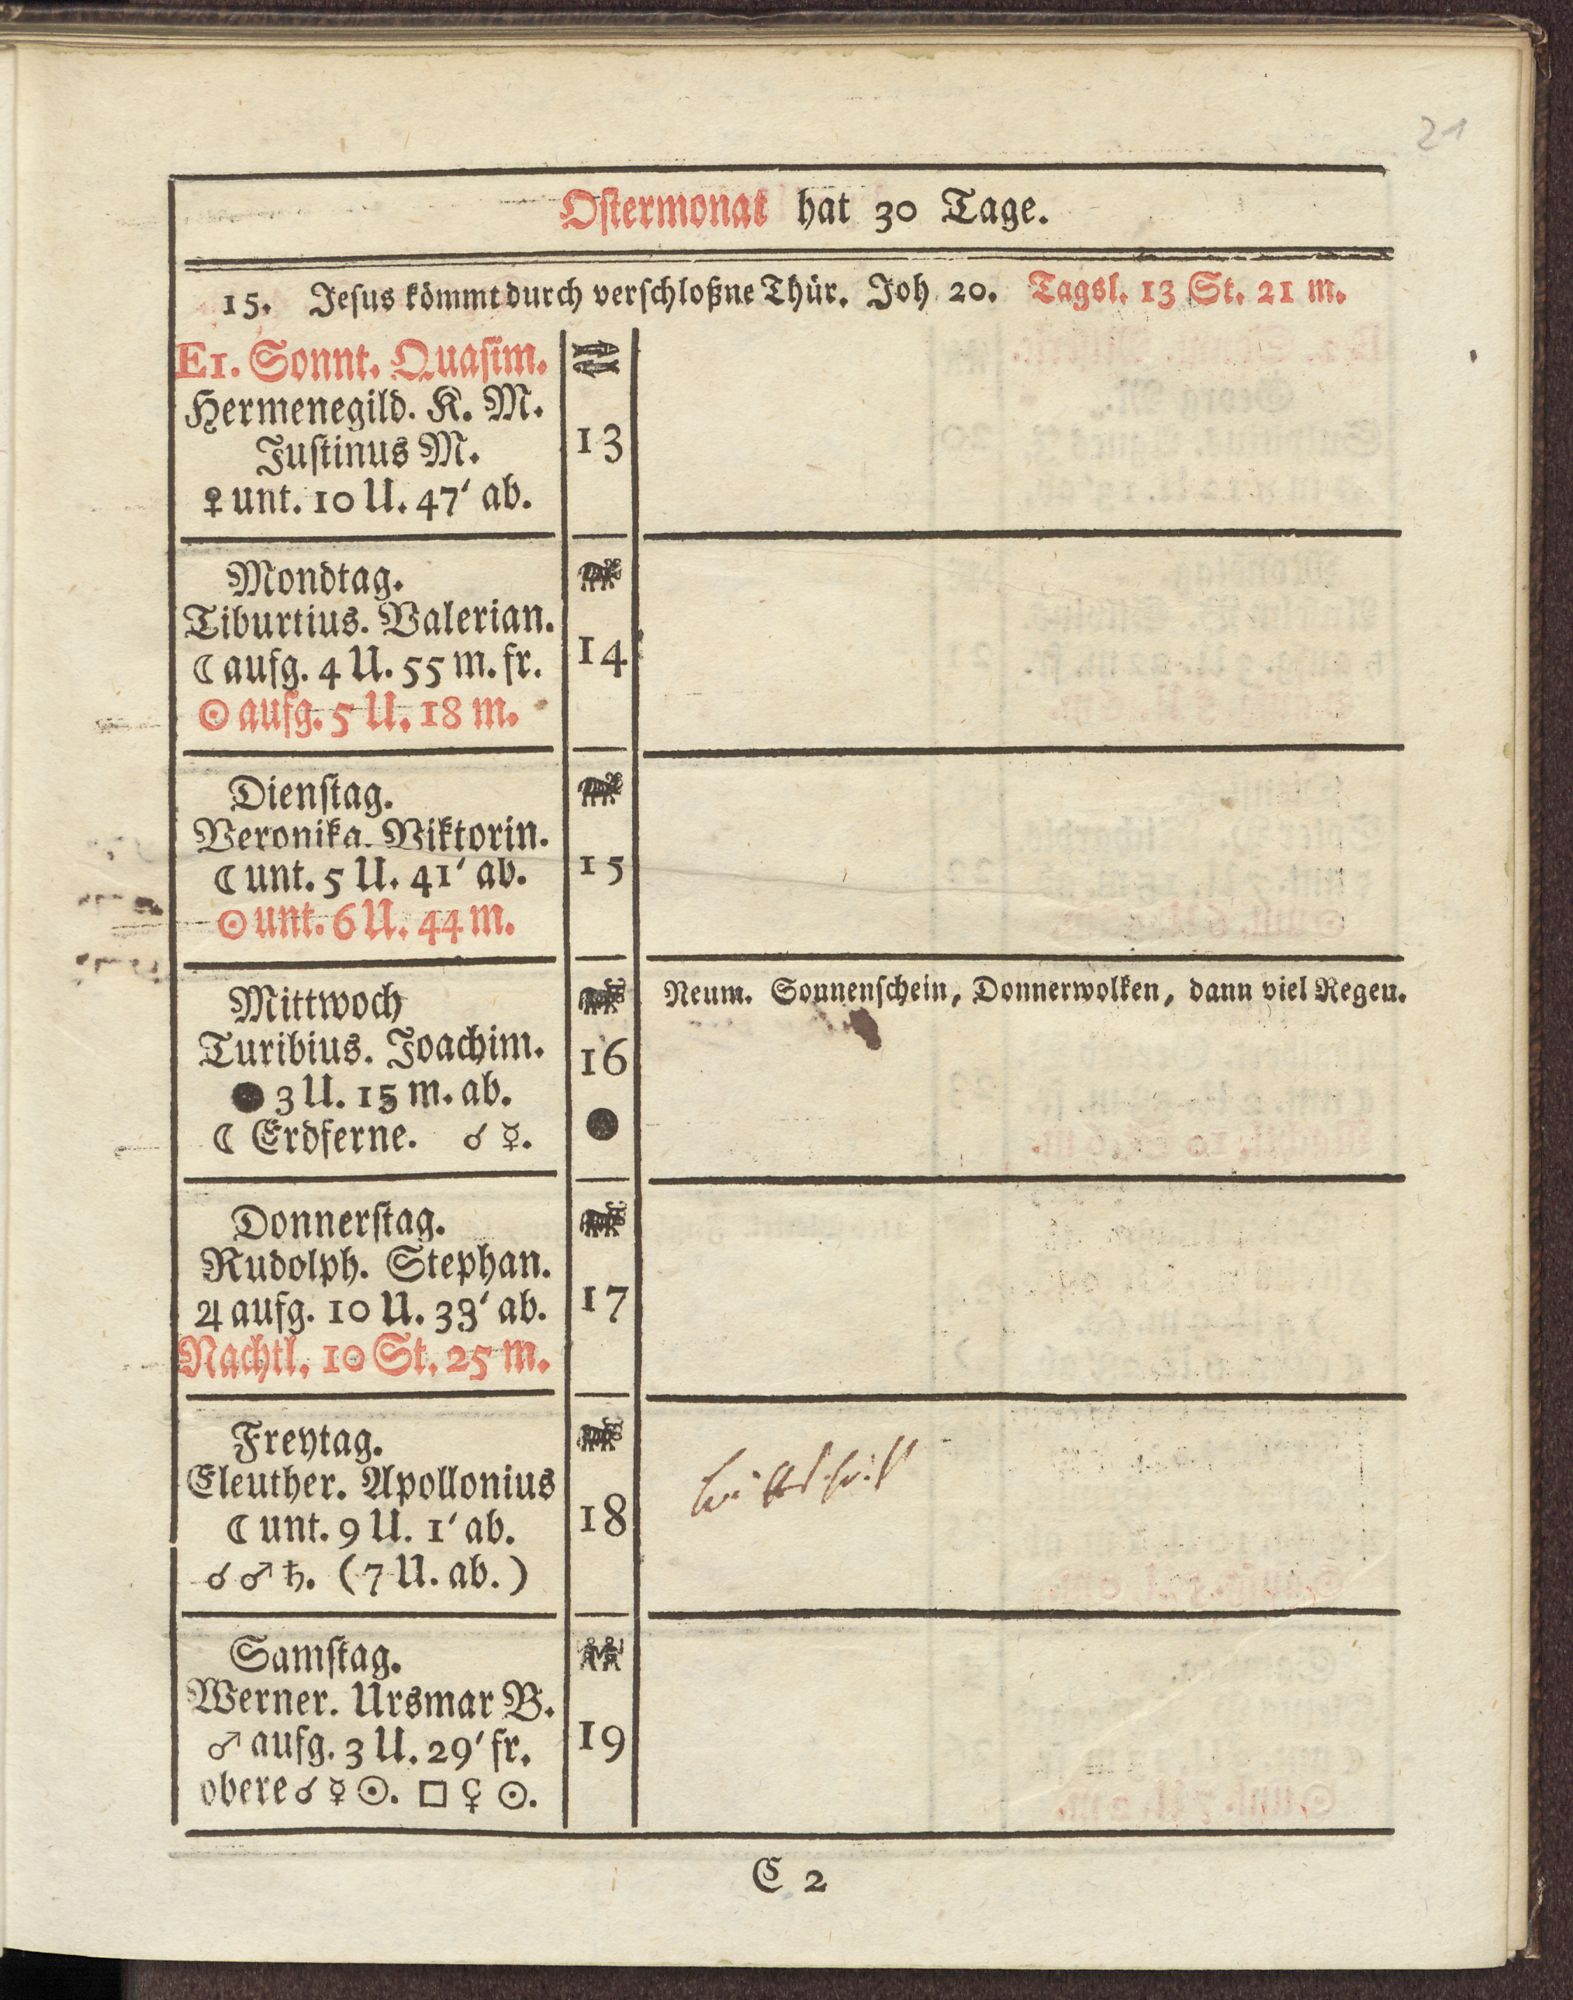 21
Ostermonat hat 30 Tage.
15. Jesus kömmt durch verschloßne Thür. Joh 20. Tagsl. 13 St. 21 m.
E1. Sonnt. Quasim.
Hermenegild. K. M.
13
Justinus M.
♀ unt. 10 U. 47′ ab.
Mondtag.
Tiburtius. Valerian.
14
☾ aufg. 4 U. 55 m. fr.
☉ aufg. 5 U. 18 m.
Dienstag.
Veronika. Viktorin.
15
☾ unt. 5 U. 41′ ab.
☉ unt. 6 U. 44 m.
Mittwoch
Neum. Sonnenschein, Donnerwolken, dann viel Regen.
Turibius. Joachim.
16
● 3 U. 15 m. ab.
☾ Erdferne. ☌ ☿.
Donnerstag.
Rudolph. Stephan.
17
♃ aufg. 10 U. 33′ ab.
Nachtl. 10 St. 25 m.
Freytag.
Eleuther. Apollonius
18
☾ unt. 9 U. 1′ ab.
☌ ♂ ♄. (7 U. ab.)
Samstag.
Werner. Ursmar B.
19
♂ aufg. 3 U. 29′ fr.
obere ☌ ☿ ☉. □ ⚳ ☉.
C 2